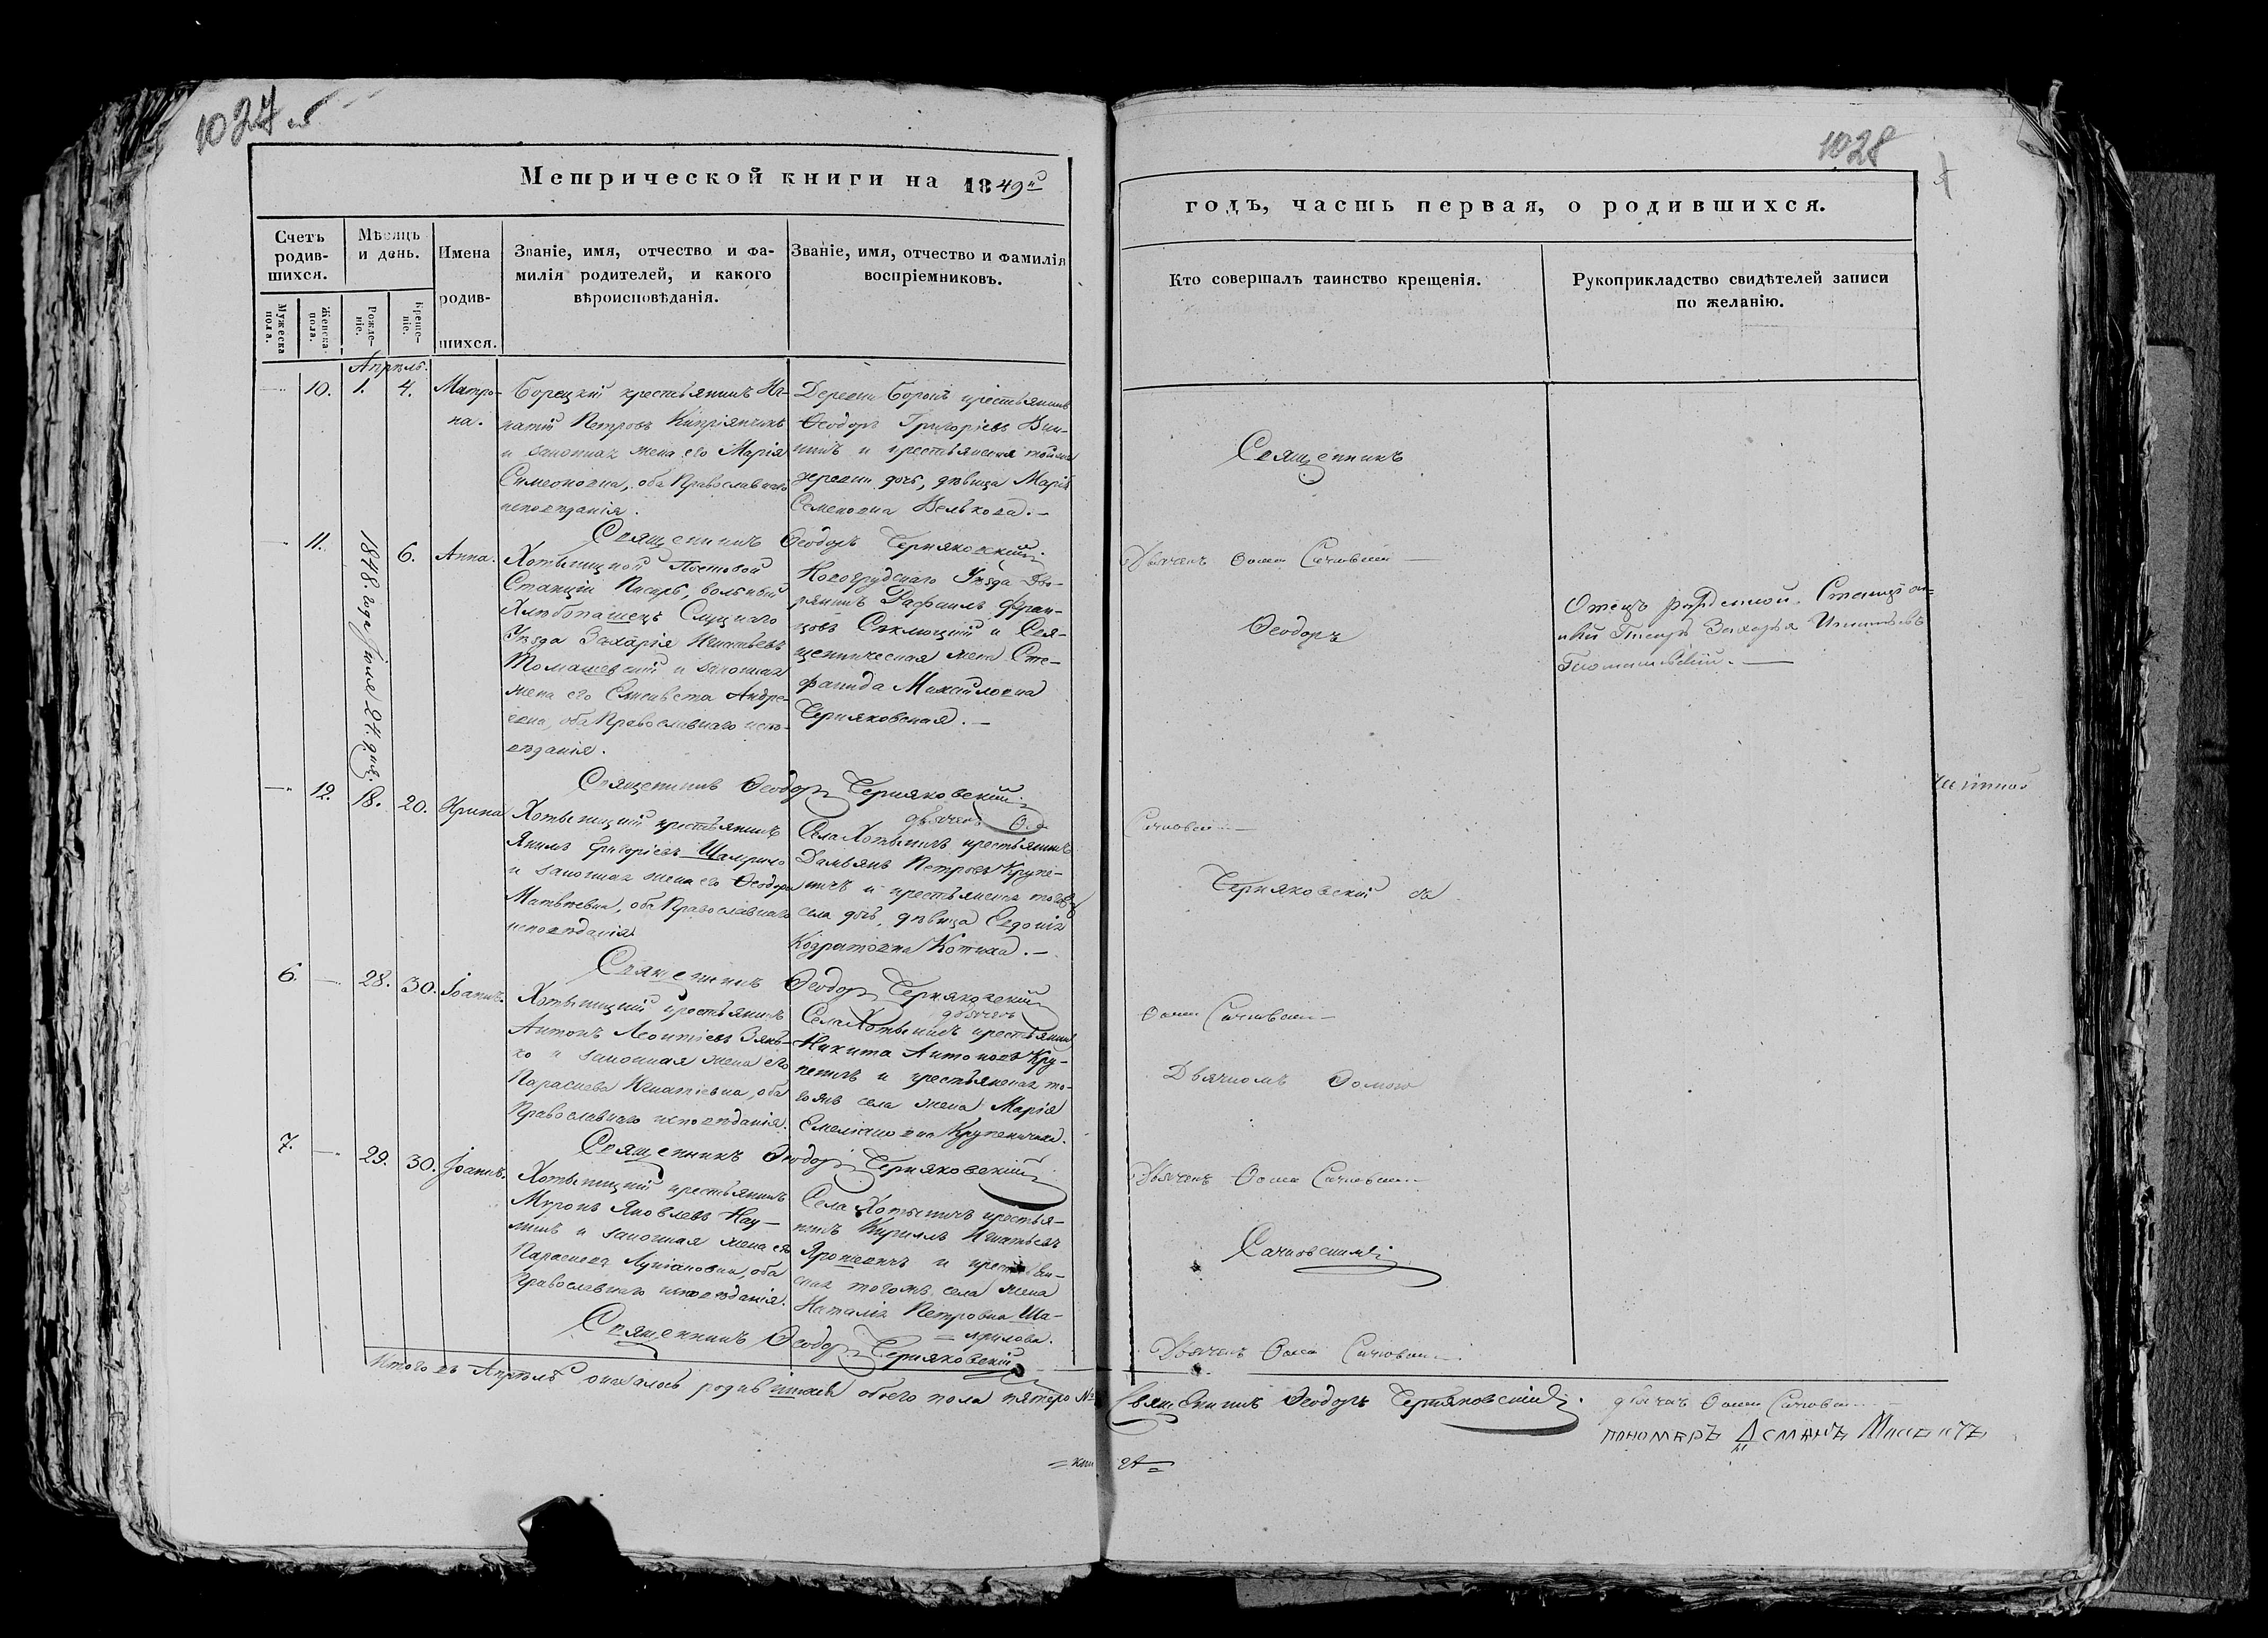 1027 об
1028
Метрической книги на 1849й
годъ, часть первая, о родившихся.
Счетъ родив-
шихся.
Мужеска пола.
Женска пола.
Мѣсяцъ и день.
Рожде-
ніе.
Креще-
ніе.
Имена
родив-
шихся.
Званіе, имя, отчество и фа-
милія родителей, и какого
вѣроисповѣданія.
Званіе, имя, отчество и фамилія
воспріемниковъ.
Кто совершалъ таинство крещенія.
Рукоприкладство свидѣтелей записи
по желанію.
Апрѣль.
10. 1. 4. Матро-
на.
Борецкій крестьянинъ Иг-
натій Петровъ Кипріянчикъ
и законная жена его Марія
Симеоновна, оба Православнаго
исповѣданія.
Деревни Борокъ крестьянинъ
Ѳеодоръ Григоріевъ
и крестьянина той же
деревни дочь, дѣвица Марія
Семеновна Велькова.
Священникъ Ѳеодоръ Черняковскій
Дьячекъ Ѳома Сачковскій
11. 1848 года Іюня 24 дня. 6. Анна.
Хотыницкой Почтовой
Станціи Писарь, вольный
Хлѣбопашецъ Слуцкаго
Уѣзда Захарія Игнатьевъ
Томашевскій и законная
жена его Елисавета Андре-
евна, оба Православнаго испо-
вѣданія.
Новогрудскаго Уѣзда Дво-
рянинъ Рафаилъ Фран-
цовъ и Свя-
щенническая жена Сте-
фанида Михайловна
Черняковская.
Отецъ
Писарь Захарья Игнатьевъ
Томашевскій.
Священникъ Ѳеодоръ Черняковскій
дьячекъ Ѳома
Сачковскій
12. 18. 20. Ярина
Хотыницкій крестьянинъ
Якимъ Григоріевъ
и законная жена его Ѳеодора
Матвѣевна, оба Православнаго
исповѣданія.
Села Хотыничъ крестьянинъ
Дамьянъ Петровъ Крупе-
ничъ и крестьянина тогожъ
села дочь, дѣвица Евдокія
Кодратовна Котика.
Священникъ Ѳеодоръ Черняковскій
дьячекъ
Ѳома Сачковскій
6. 28. 30. Іоаннъ.
Хотыницкій крестьянинъ
Антонъ Леонтіевъ Зянь-
ко и законная жена его
Параскева Игнатіевна, оба
Православнаго исповѣданія.
Села Хотыничъ крестьянинъ
Никита Антоновъ Кру-
пеничъ и крестьянская то-
гожъ села жена Марія
Емеліановна Крупеничова.
Священникъ Ѳеодоръ Черняковскій
Дьячекъ Ѳома Сачковскій
7. 29. 30. Іоаннъ.
Хотыницкій крестьянинъ
Миронъ Яковлевъ Нау-
мчикъ и законная жена его
Параскева Лукіановна, оба
Православнаго исповѣданія.
Села Хотыничъ крестья-
нинъ Кириллъ Игнатьевъ
Ярошевичъ и крестьян-
ская тогожъ села жена
Наталія Петровна Ша-
Священникъ Ѳеодоръ Черняковскій
Дьячекъ Ѳома Сачковскій
Священникъ
Ѳеодоръ
Черняковскій съ
Дьячкомъ Ѳомою
Сачковскимъ
Итого въ Апрѣлѣ оказалось родившихся обоего пола пятеро
Священникъ Ѳеодоръ Черняковскій
дьячекъ Ѳома Сачковскій
пономаръ